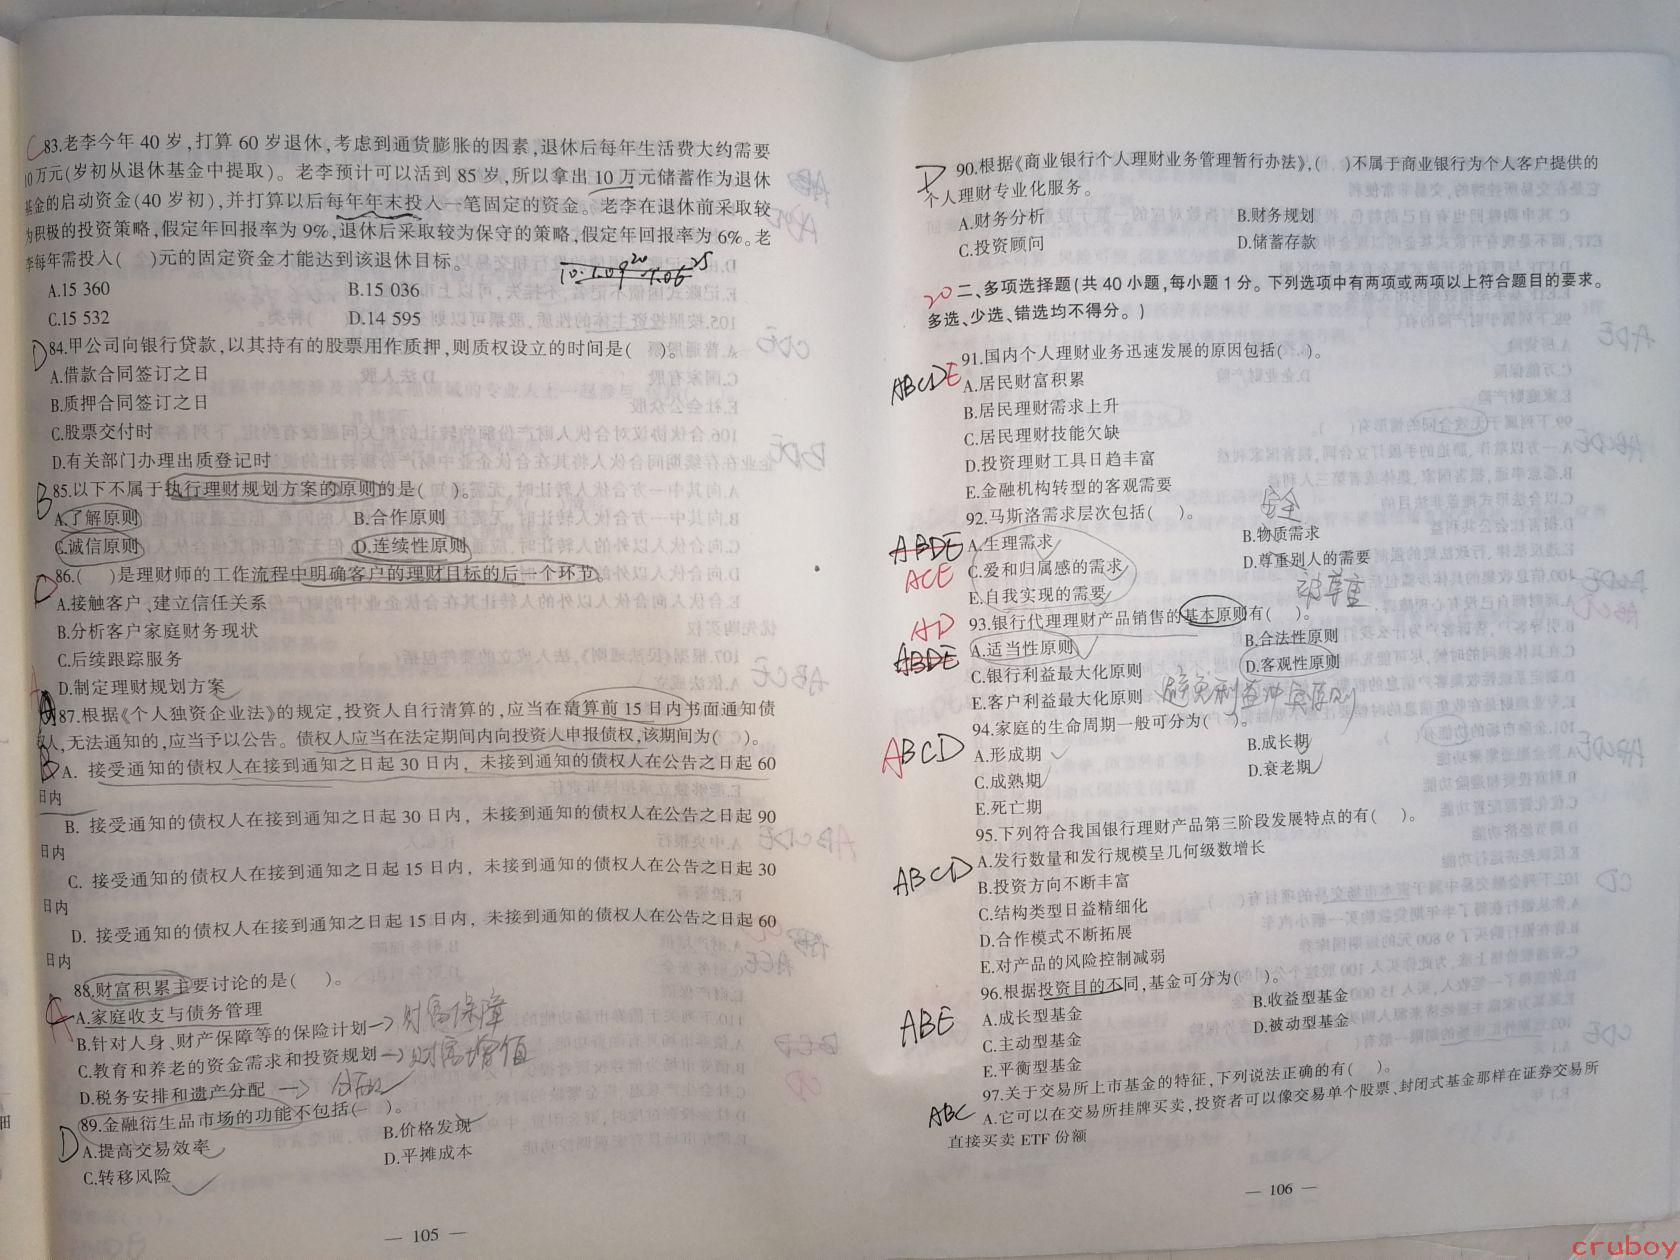 C 83.老李今年 40 岁,打算 60 岁退休,考虑到通货膨胀的因素,退休后每年生活费大约需要
10万元(岁初从退休基金中提取)。老李预计可以活到 85 岁,所以拿出 10 万元储蓄作为退休
基金的启动资金(40 岁初),并打算以后每年年末投入一笔固定的资金。老李在退休前采取较
为积极的投资策略,假定年回报率为 9%,退休后采取较为保守的策略,假定年回报率为 6%。老
李每年需投入(  )元的固定资金才能达到该退休目标。
A.15 360 B.15 036
C.15 532 D.14 595
D 84.甲公司向银行贷款,以其持有的股票用作质押,则质权设立的时间是(  )。
A.借款合同签订之日
B.质押合同签订之日
C.股票交付时
D.有关部门办理出质登记时
B 85.以下不属于执行理财规划方案的原则的是(  )。
A.了解原则 B.合作原则
C.诚信原则 D.连续性原则
D 86.(  )是理财师的工作流程中明确客户的理财目标的后一个环节。
A.接触客户、建立信任关系
B.分析客户家庭财务现状
C.后续跟踪服务
D.制定理财规划方案
87.根据《个人独资企业法》的规定,投资人自行清算的,应当在清算前 15 日内书面通知债
人,无法通知的,应当予以公告。债权人应当在法定期间内向投资人申报债权,该期间为(  )。
B A. 接受通知的债权人在接到通知之日起 30 日内，未接到通知的债权人在公告之日起 60
日内
B. 接受通知的债权人在接到通知之日起 30 日内，未接到通知的债权人在公告之日起 90
日内
C. 接受通知的债权人在接到通知之日起 15 日内，未接到通知的债权人在公告之日起 30
日内
D. 接受通知的债权人在接到通知之日起 15 日内，未接到通知的债权人在公告之日起 60
日内
88.财富积累主要讨论的是(  )。
A A.家庭收支与债务管理
B.针对人身、财产保障等的保险计划→财富保障
C.教育和养老的资金需求和投资规划→财富增值
D.税务安排和遗产分配→分配
89.金融衍生品市场的功能不包括(  )。
D A.提高交易效率 B.价格发现
C.转移风险 D.平摊成本
— 105 —
D 90.根据《商业银行个人理财业务管理暂行办法》,(  )不属于商业银行为个人客户提供的
个人理财专业化服务。
A.财务分析 B.财务规划
C.投资顾问 D.储蓄存款
20 二、多项选择题(共 40 小题,每小题 1 分。下列选项中有两项或两项以上符合题目的要求。
多选、少选、错选均不得分。)
91.国内个人理财业务迅速发展的原因包括(  )。
ABCDE A.居民财富积累
B.居民理财需求上升
C.居民理财技能欠缺
D.投资理财工具日趋丰富
E.金融机构转型的客观需要
92.马斯洛需求层次包括(  )。 安全
ABDE A.生理需求 B.物质需求
ACE C.爱和归属感的需求 D.尊重别人的需要
E.自我实现的需要 被尊重
AD 93.银行代理理财产品销售的基本原则有(  )。
ABDE A.适当性原则 B.合法性原则
C.银行利益最大化原则 D.客观性原则
E.客户利益最大化原则 避免利益冲突原则
94.家庭的生命周期一般可分为(  )。
ABCD A.形成期 B.成长期
C.成熟期 D.衰老期
E.死亡期
95.下列符合我国银行理财产品第三阶段发展特点的有(  )。
ABCD A.发行数量和发行规模呈几何级数增长
B.投资方向不断丰富
C.结构类型日益精细化
D.合作模式不断拓展
E.对产品的风险控制减弱
96.根据投资目的不同,基金可分为(  )。
ABE A.成长型基金 B.收益型基金
C.主动型基金 D.被动型基金
E.平衡型基金
97.关于交易所上市基金的特征,下列说法正确的有(  )。
ABC A.它可以在交易所挂牌买卖,投资者可以像交易单个股票、封闭式基金那样在证券交易所
直接买卖 ETF 份额
— 106 —
cruboy